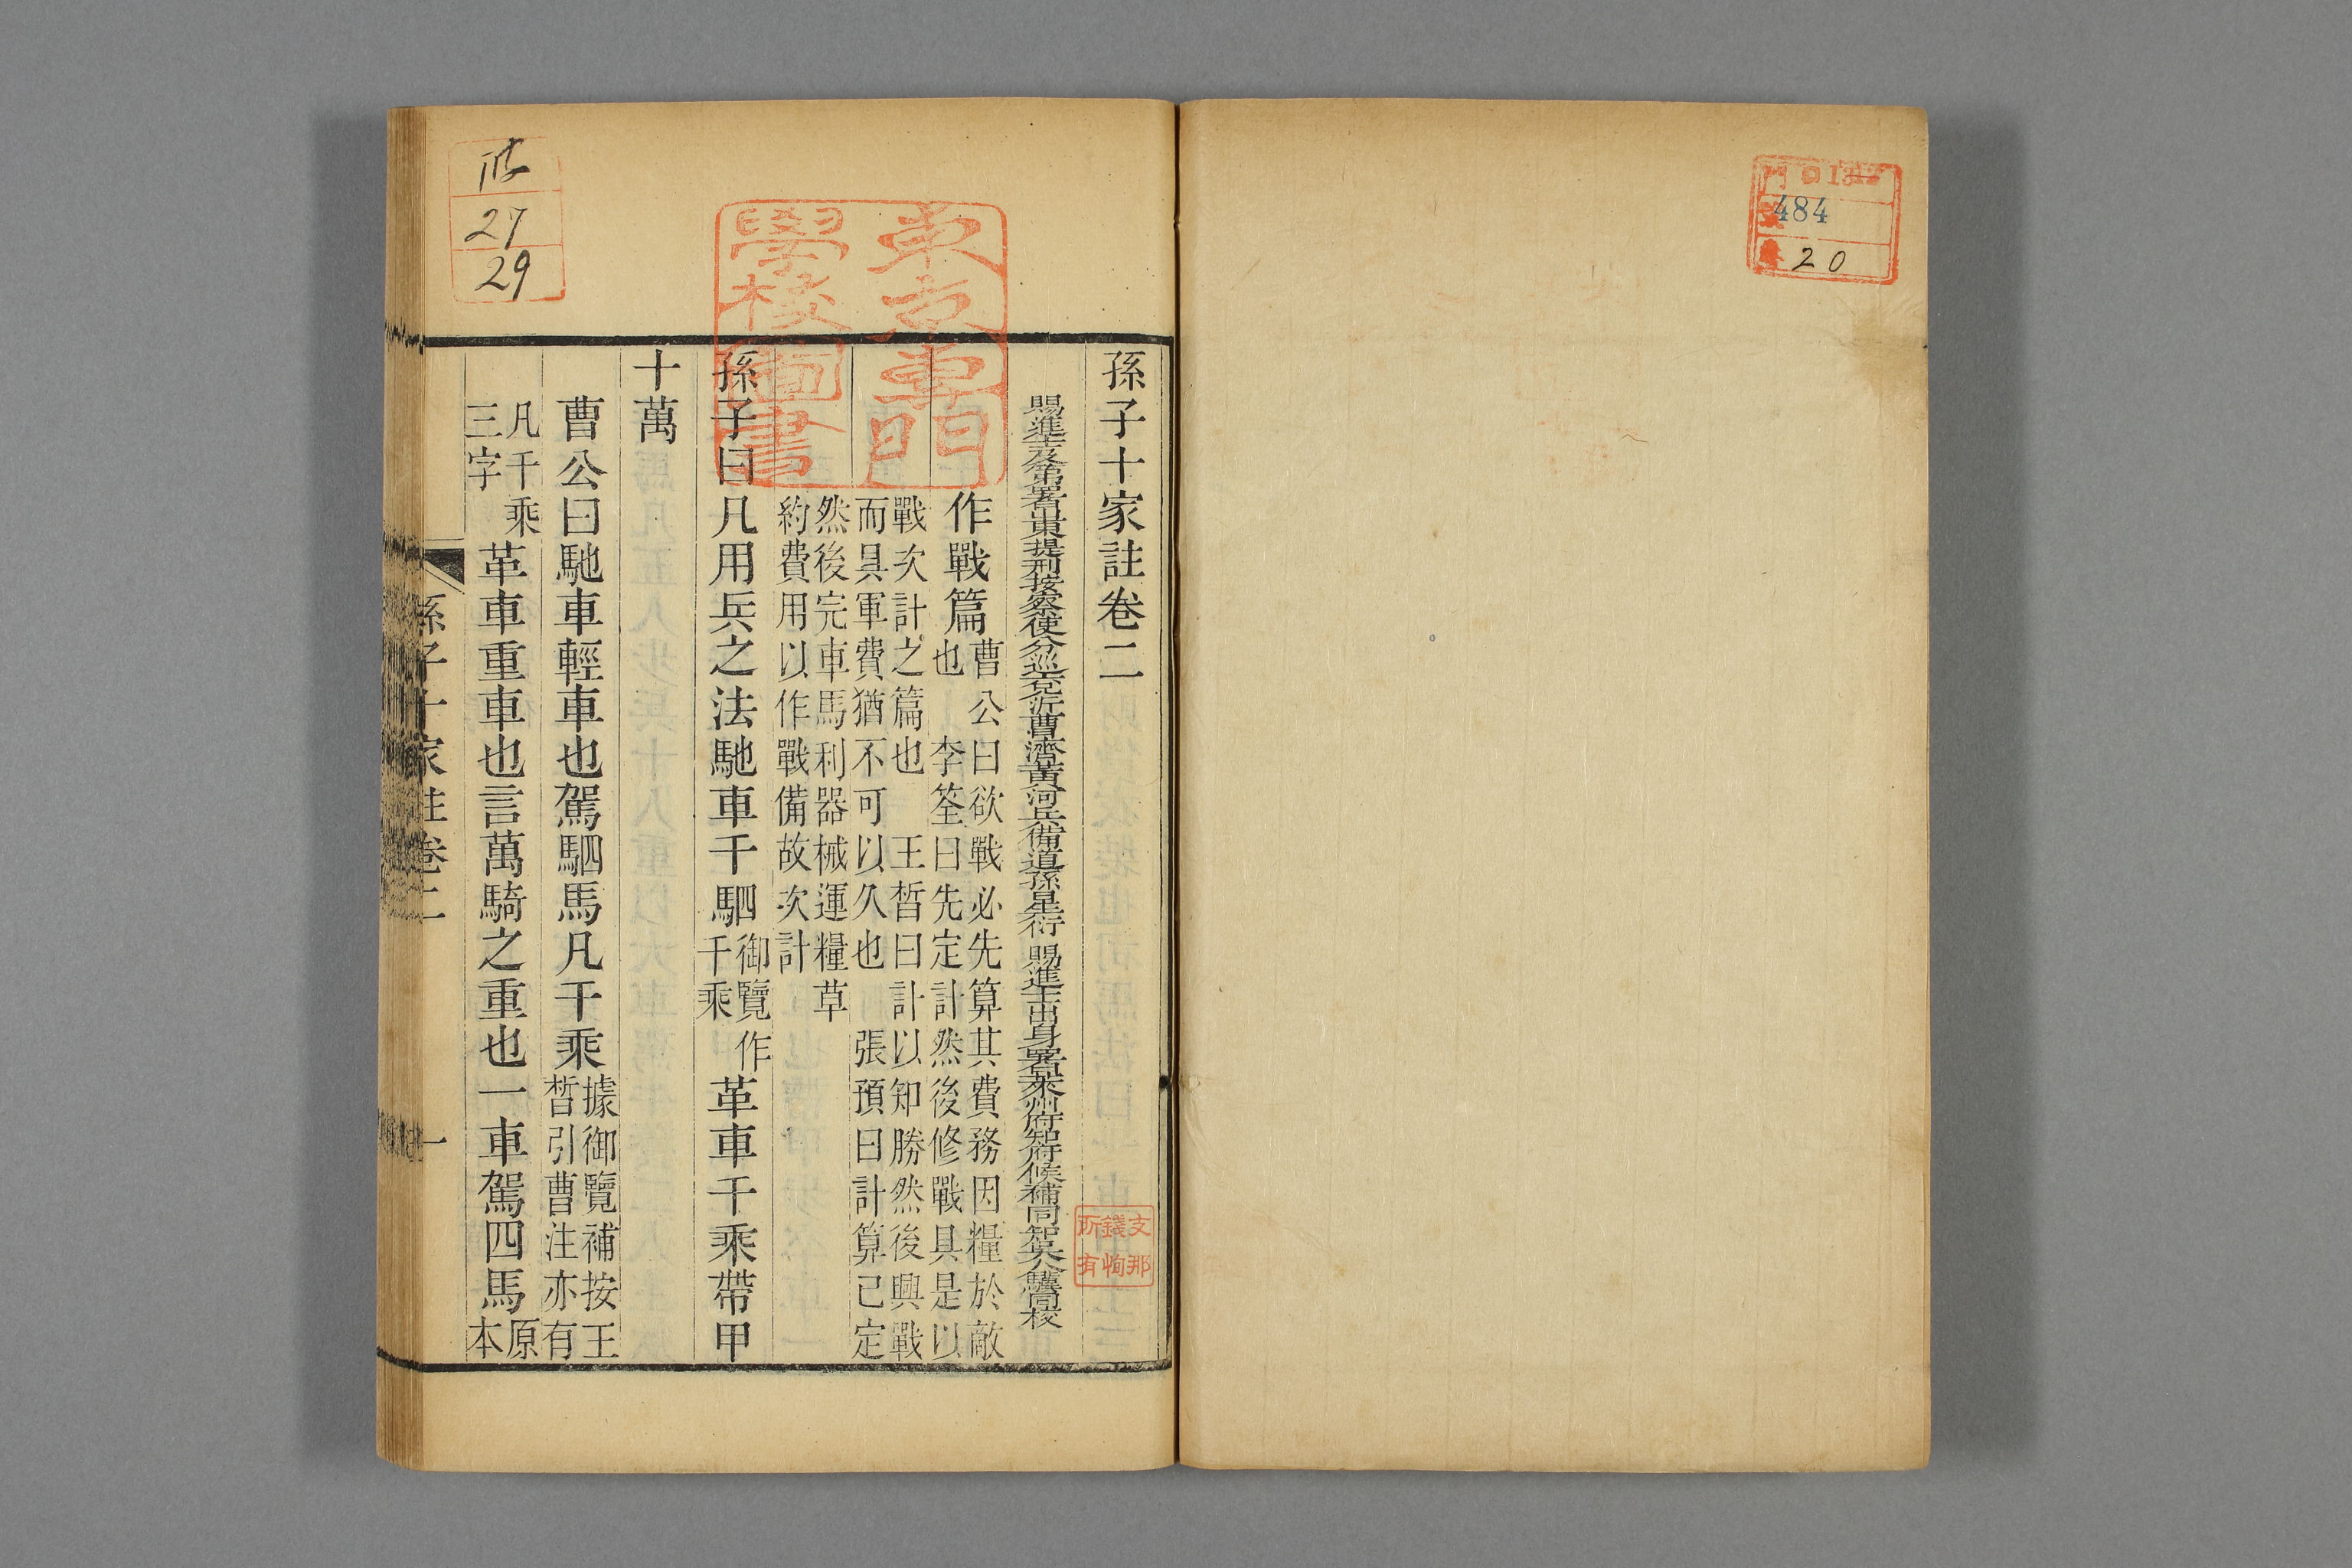 484
20
孫子十家註卷二
賜進士及第署山東提刑按察使分巡兗沂曹濟黃河兵備道孫星衍 賜進士出身署萊州府知府候補同知吳人驥同校
作戰篇
曹公曰欲戰必先算其費務因糧於敵
也 李筌曰先定計然後修戰具是以
戰次計之篇也 王晳曰計以知勝然後興戰
而具軍費猶不可以久也 張預曰計算已定
然後完車馬利器械運糧草
約費用以作戰備故次計
孫子曰凡用兵之法馳車千駟
御覽作
千乘
革車千乘帶甲
十萬
曹公曰馳車輕車也駕駟馬凡千乘
據御覽補按王
晳引曹注亦有
凡千乘
三字
革車重車也言萬騎之重也一車駕四馬
原
本
孫子十家註卷二
一
東京專門
學校圖書
支那
錢恂
所有
27
29